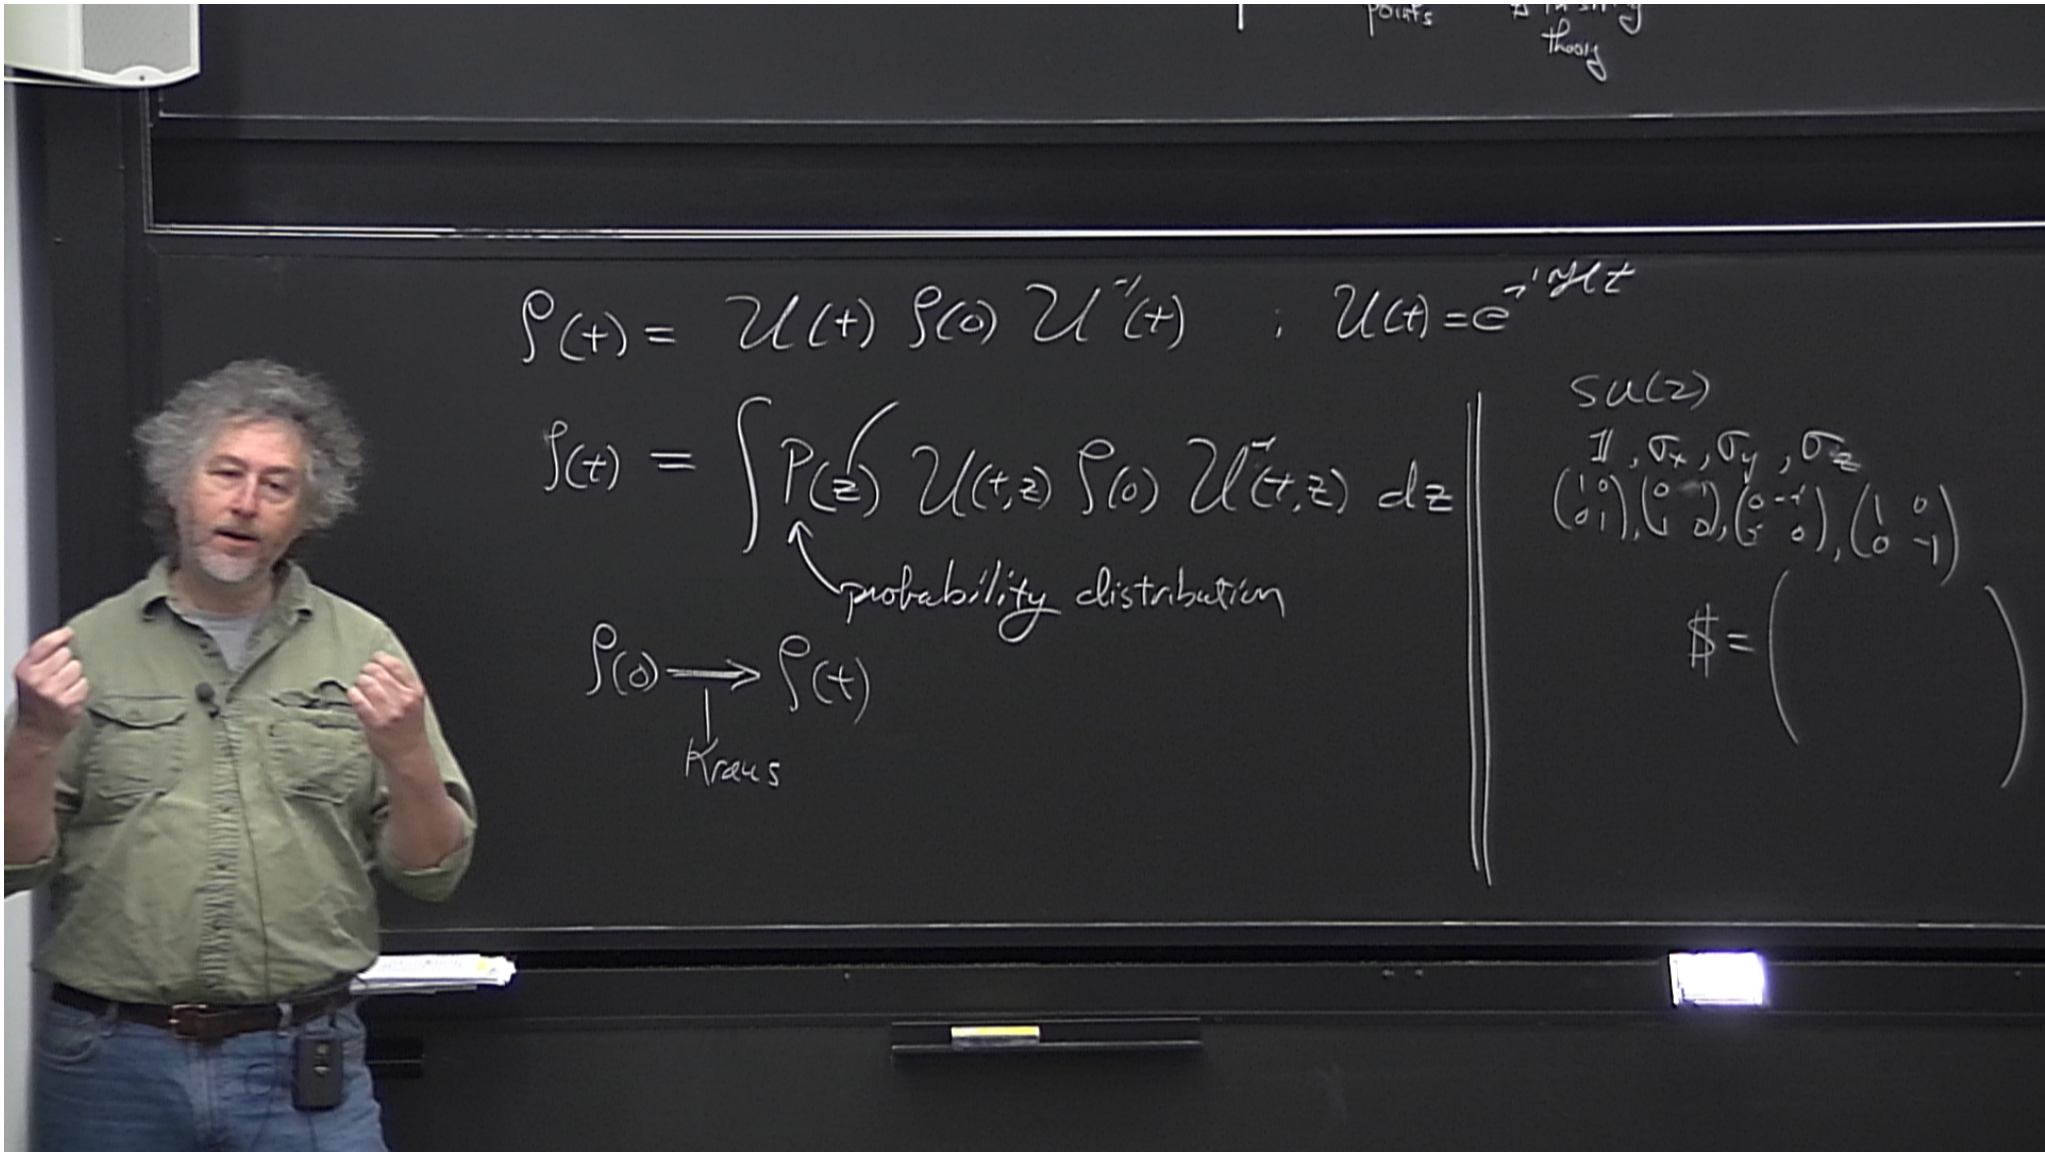 points
theory
ρ(t) = U(t) ρ(0) U⁻¹(t) ; U(t) = e^{-iHt}
ρ(t) = ∫ P(z) U(t,z) ρ(0) U⁻¹(t,z) dz
probability distribution
ρ(0) → ρ(t)
Kraus
SU(2)
𝟙, σx, σy, σz
(1 0; 0 1), (0 1; 1 0), (0 -i; i 0), (1 0; 0 -1)
$ = ( )